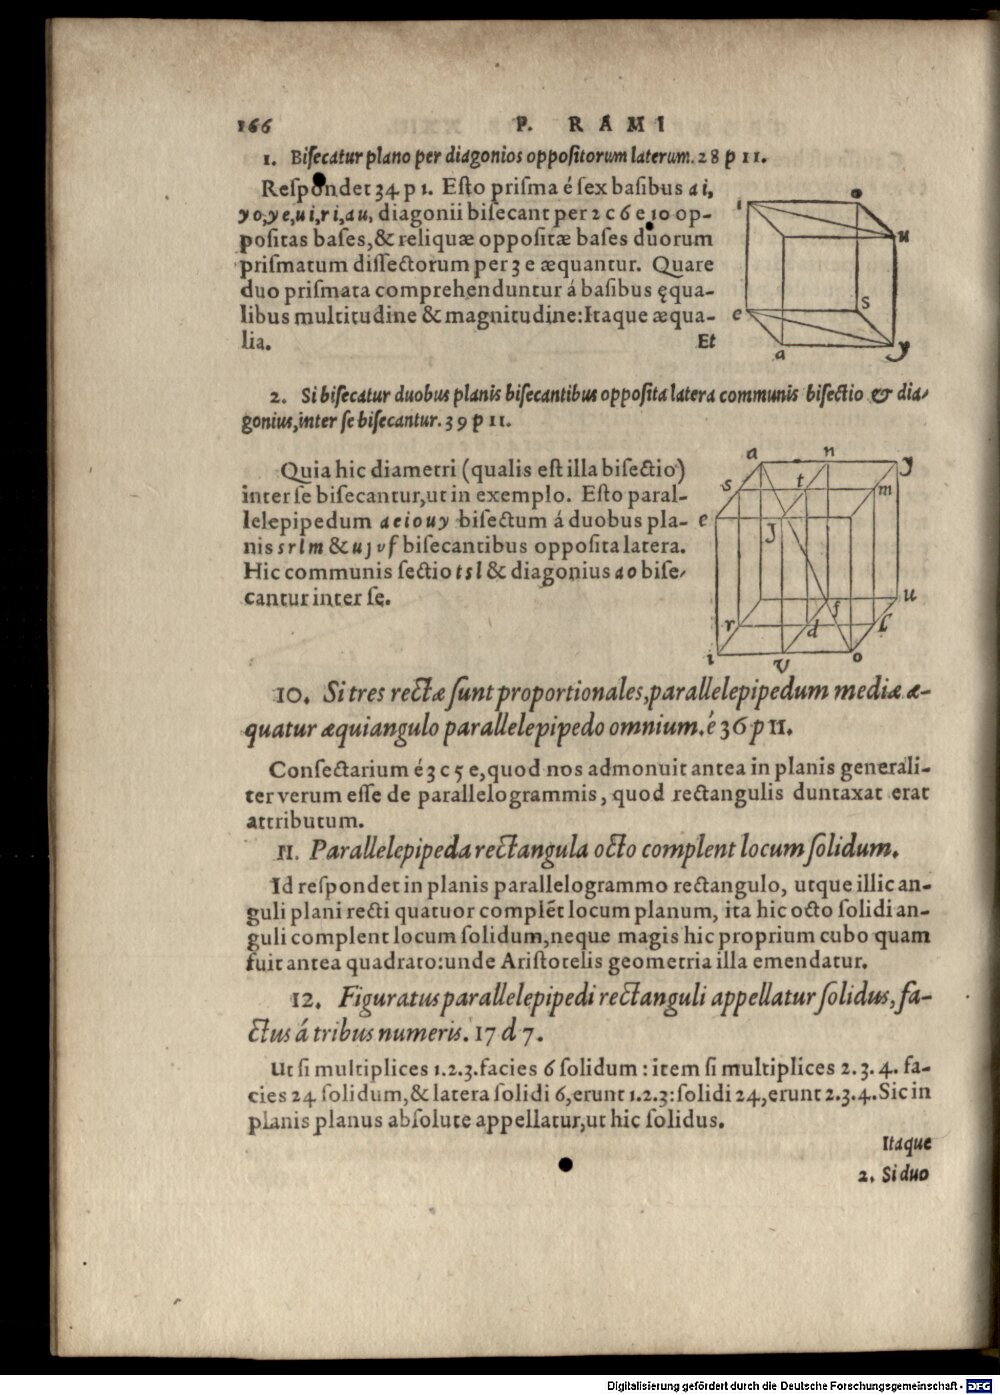 166 P. RAMI
1. Biſecatur plano per diagonios oppoſitorum laterum. 28 p 11.
Reſpondet 34 p 1. Eſto priſma é ſex baſibus ai,
yo, ye, ui, ri, au, diagonii biſecant per 2 c 6 e 10 op-
poſitas baſes, & reliquæ oppoſitæ baſes duorum
priſmatum diſſectorum per 3 e æquantur. Quare
duo priſmata comprehenduntur á baſibus ęqua-
libus multitudine & magnitudine: Itaque æqua-
lia. Et
i o u e s a y
2. Si biſecatur duobus planis biſecantibus oppoſita latera communis biſectio & dia-
gonius, inter ſe biſecantur. 39 p 11.
Quia hic diametri (qualis eſt illa biſectio)
inter ſe biſecantur, ut in exemplo. Eſto paral-
lelepipedum aeiouy biſectum á duobus pla-
nis srlm & njvf biſecantibus oppoſita latera.
Hic communis ſectio tsl & diagonius ao biſe-
cantur inter ſę.
a n y s t m e j r d f l u i v o
10. Si tres rectæ ſunt proportionales, parallelepipedum mediæ æ-
quatur æquiangulo parallelepipedo omnium. é 36 p 11.
Conſectarium é 3 c 5 e, quod nos admonuit antea in planis generali-
ter verum eſſe de parallelogrammis, quod rectangulis duntaxat erat
attributum.
11. Parallelepipeda rectangula octo complent locum ſolidum.
Id reſpondet in planis parallelogrammo rectangulo, utque illic an-
guli plani recti quatuor complēt locum planum, ita hic octo ſolidi an-
guli complent locum ſolidum, neque magis hic proprium cubo quam
fuit antea quadrato: unde Ariſtotelis geometria illa emendatur.
12. Figuratus parallelepipedi rectanguli appellatur ſolidus, fa-
ctus á tribus numeris. 17 d 7.
Ut ſi multiplices 1.2.3. facies 6 ſolidum: item ſi multiplices 2.3.4. fa-
cies 24 ſolidum, & latera ſolidi 6, erunt 1.2.3: ſolidi 24, erunt 2.3.4. Sic in
planis planus abſolute appellatur, ut hic ſolidus.
Itaque
2. Si duo
Digitalisierung gefördert durch die Deutsche Forschungsgemeinschaft - DFG